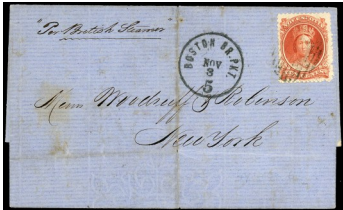 "Per British Steamer
BOSTON BR. PKT.
NOV
3
5
Messrs Woodruff & Robinson
New York